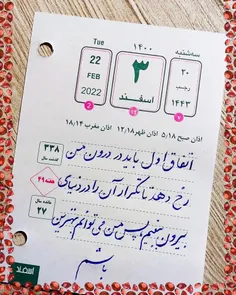 Tue
۱۴۰۰
سه‌شنبه
22
FEB
2022
2
۳
اسفند
۱۲
۲۰
رجب
۱۴۴۳
۷
اذان صبح ۵/۱۸ اذان ظهر ۱۲/۱۸ اذان مغرب ۱۸/۱۴
اتفاق اول باید در درون من
۳۳۸
رخ دهد تا تکرار آن را در دنیای
هفته ۴۹
بیرون ببینیم، پس من می توانم بهترین
۲۷
باشم
اسفند